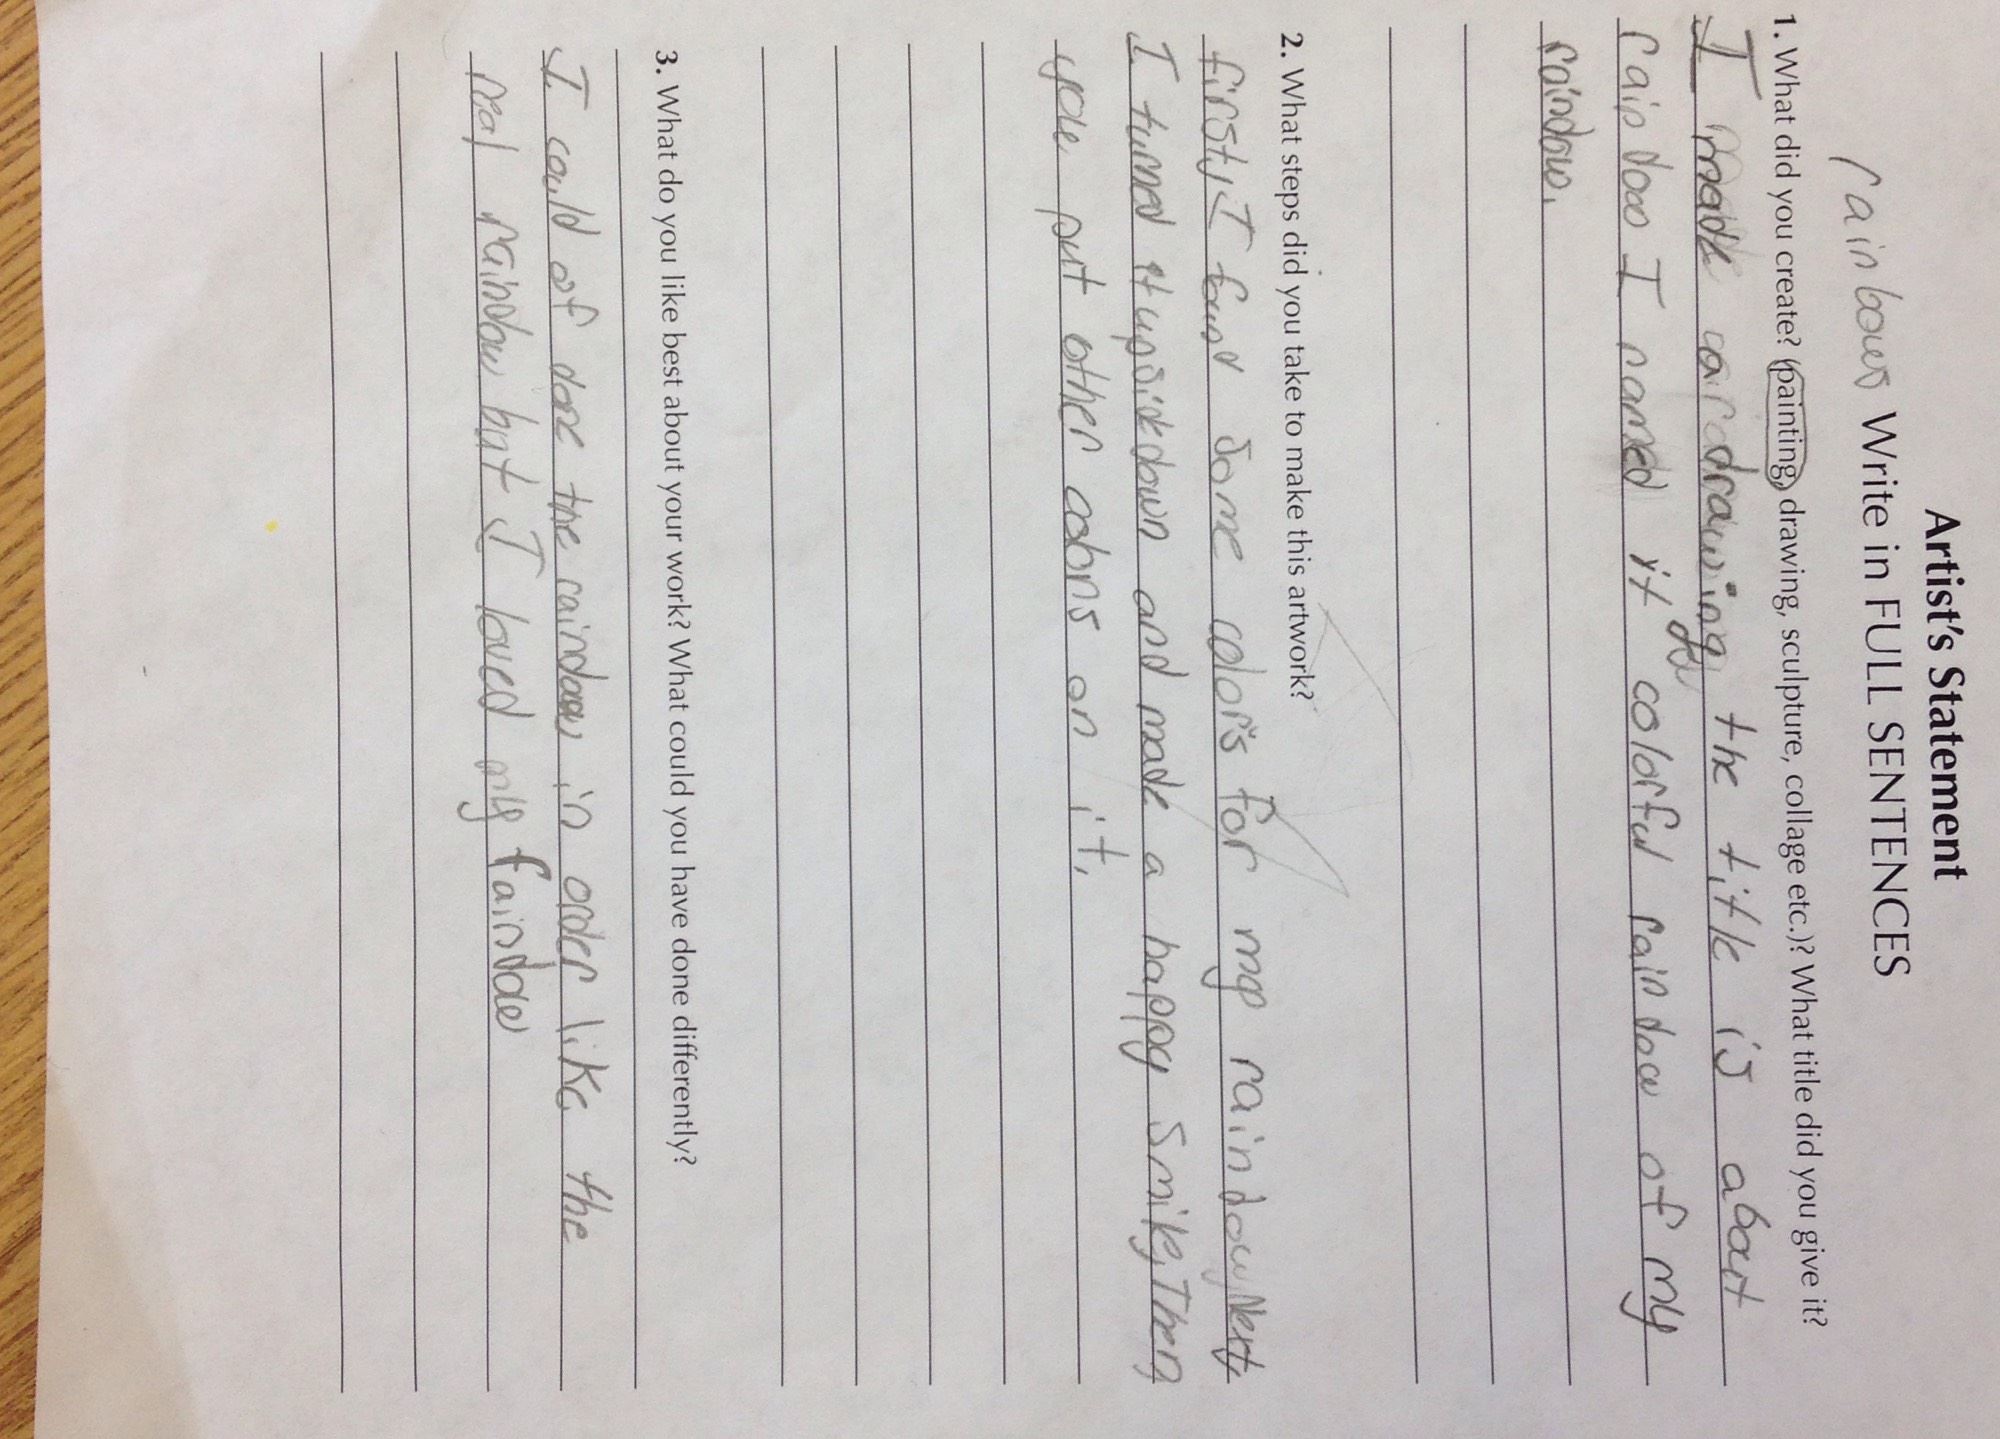 Artist's Statement
rainbows Write in FULL SENTENCES
1. What did you create? (painting, drawing, sculpture, collage etc.)? What title did you give it?
I made drawing the title is about
raindow I named it colorful raindow of my
raindow.
2. What steps did you take to make this artwork?
firsty I some color's for my raindow, Next,
I turned it upsidedown and made a happy smile, Then
you put other colors on it.
3. What do you like best about your work? What could you have done differently?
I could of done the raindow in order like the
real raindow but I loved my raindow